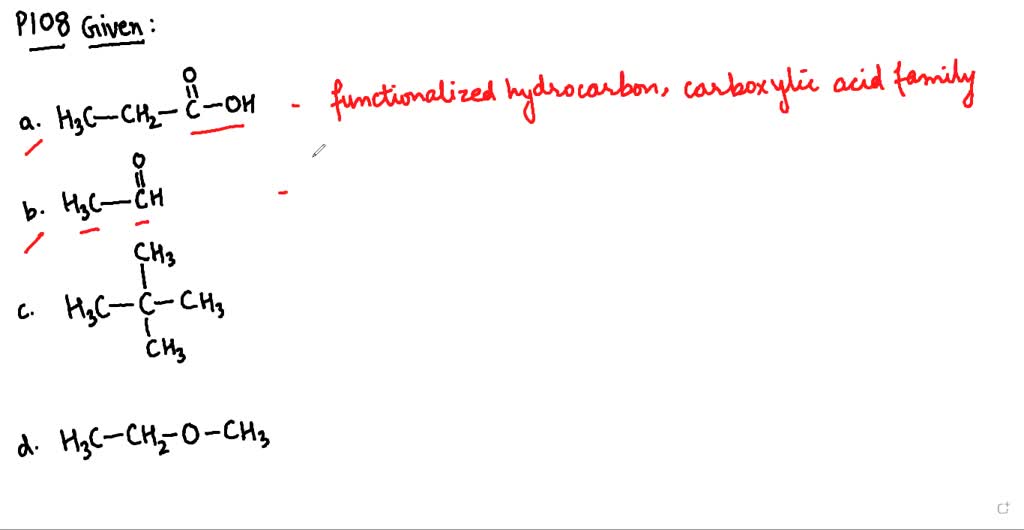 P108 Given:
O
||
a. H₃C—CH₂—C—OH - functionalized hydrocarbon, carboxylic acid family
O
||
b. H₃C—CH -
CH₃
|
c. H₃C—C—CH₃
|
CH₃
d. H₃C—CH₂—O—CH₃